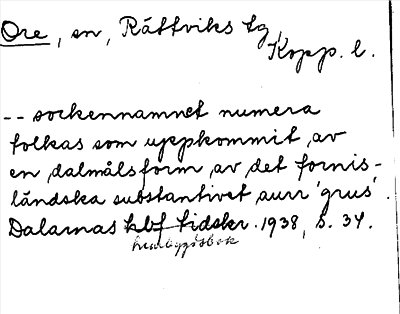 Ore, sn, Rättviks tg,
Kopp. l.
-- sockennamnet numera
tolkas som uppkommit av
en dalmålsform av det fornis-
ländska substantivet aurr 'grus'.
Dalarnas hbf tidskr. 1938, s. 34.
hembygdsbok